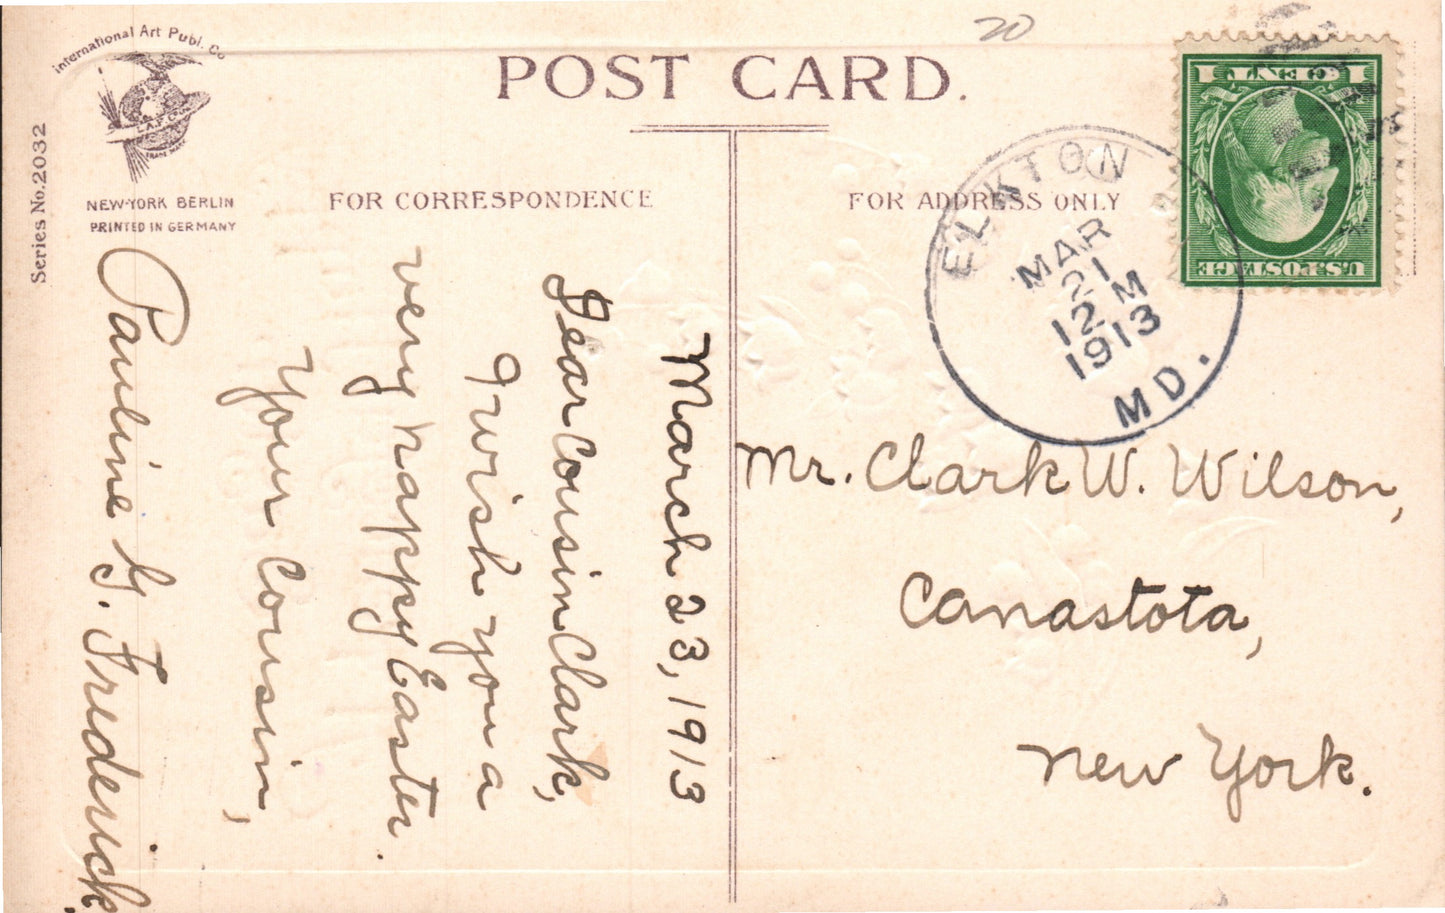 20
International Art Publ. Co
POST CARD.
Series No. 2032
NEW-YORK BERLIN
PRINTED IN GERMANY
FOR CORRESPONDENCE
FOR ADDRESS ONLY
1 CENT 1
U.S.POSTAGE
ELKTON
MAR
21
12 M
1913
MD.
March 23, 1913
Dear Cousin Clark,
I wish you a
very happy Easter.
Your Cousin,
Pauline G. Frederick.
Mr. Clark W. Wilson,
Canastota,
New York.